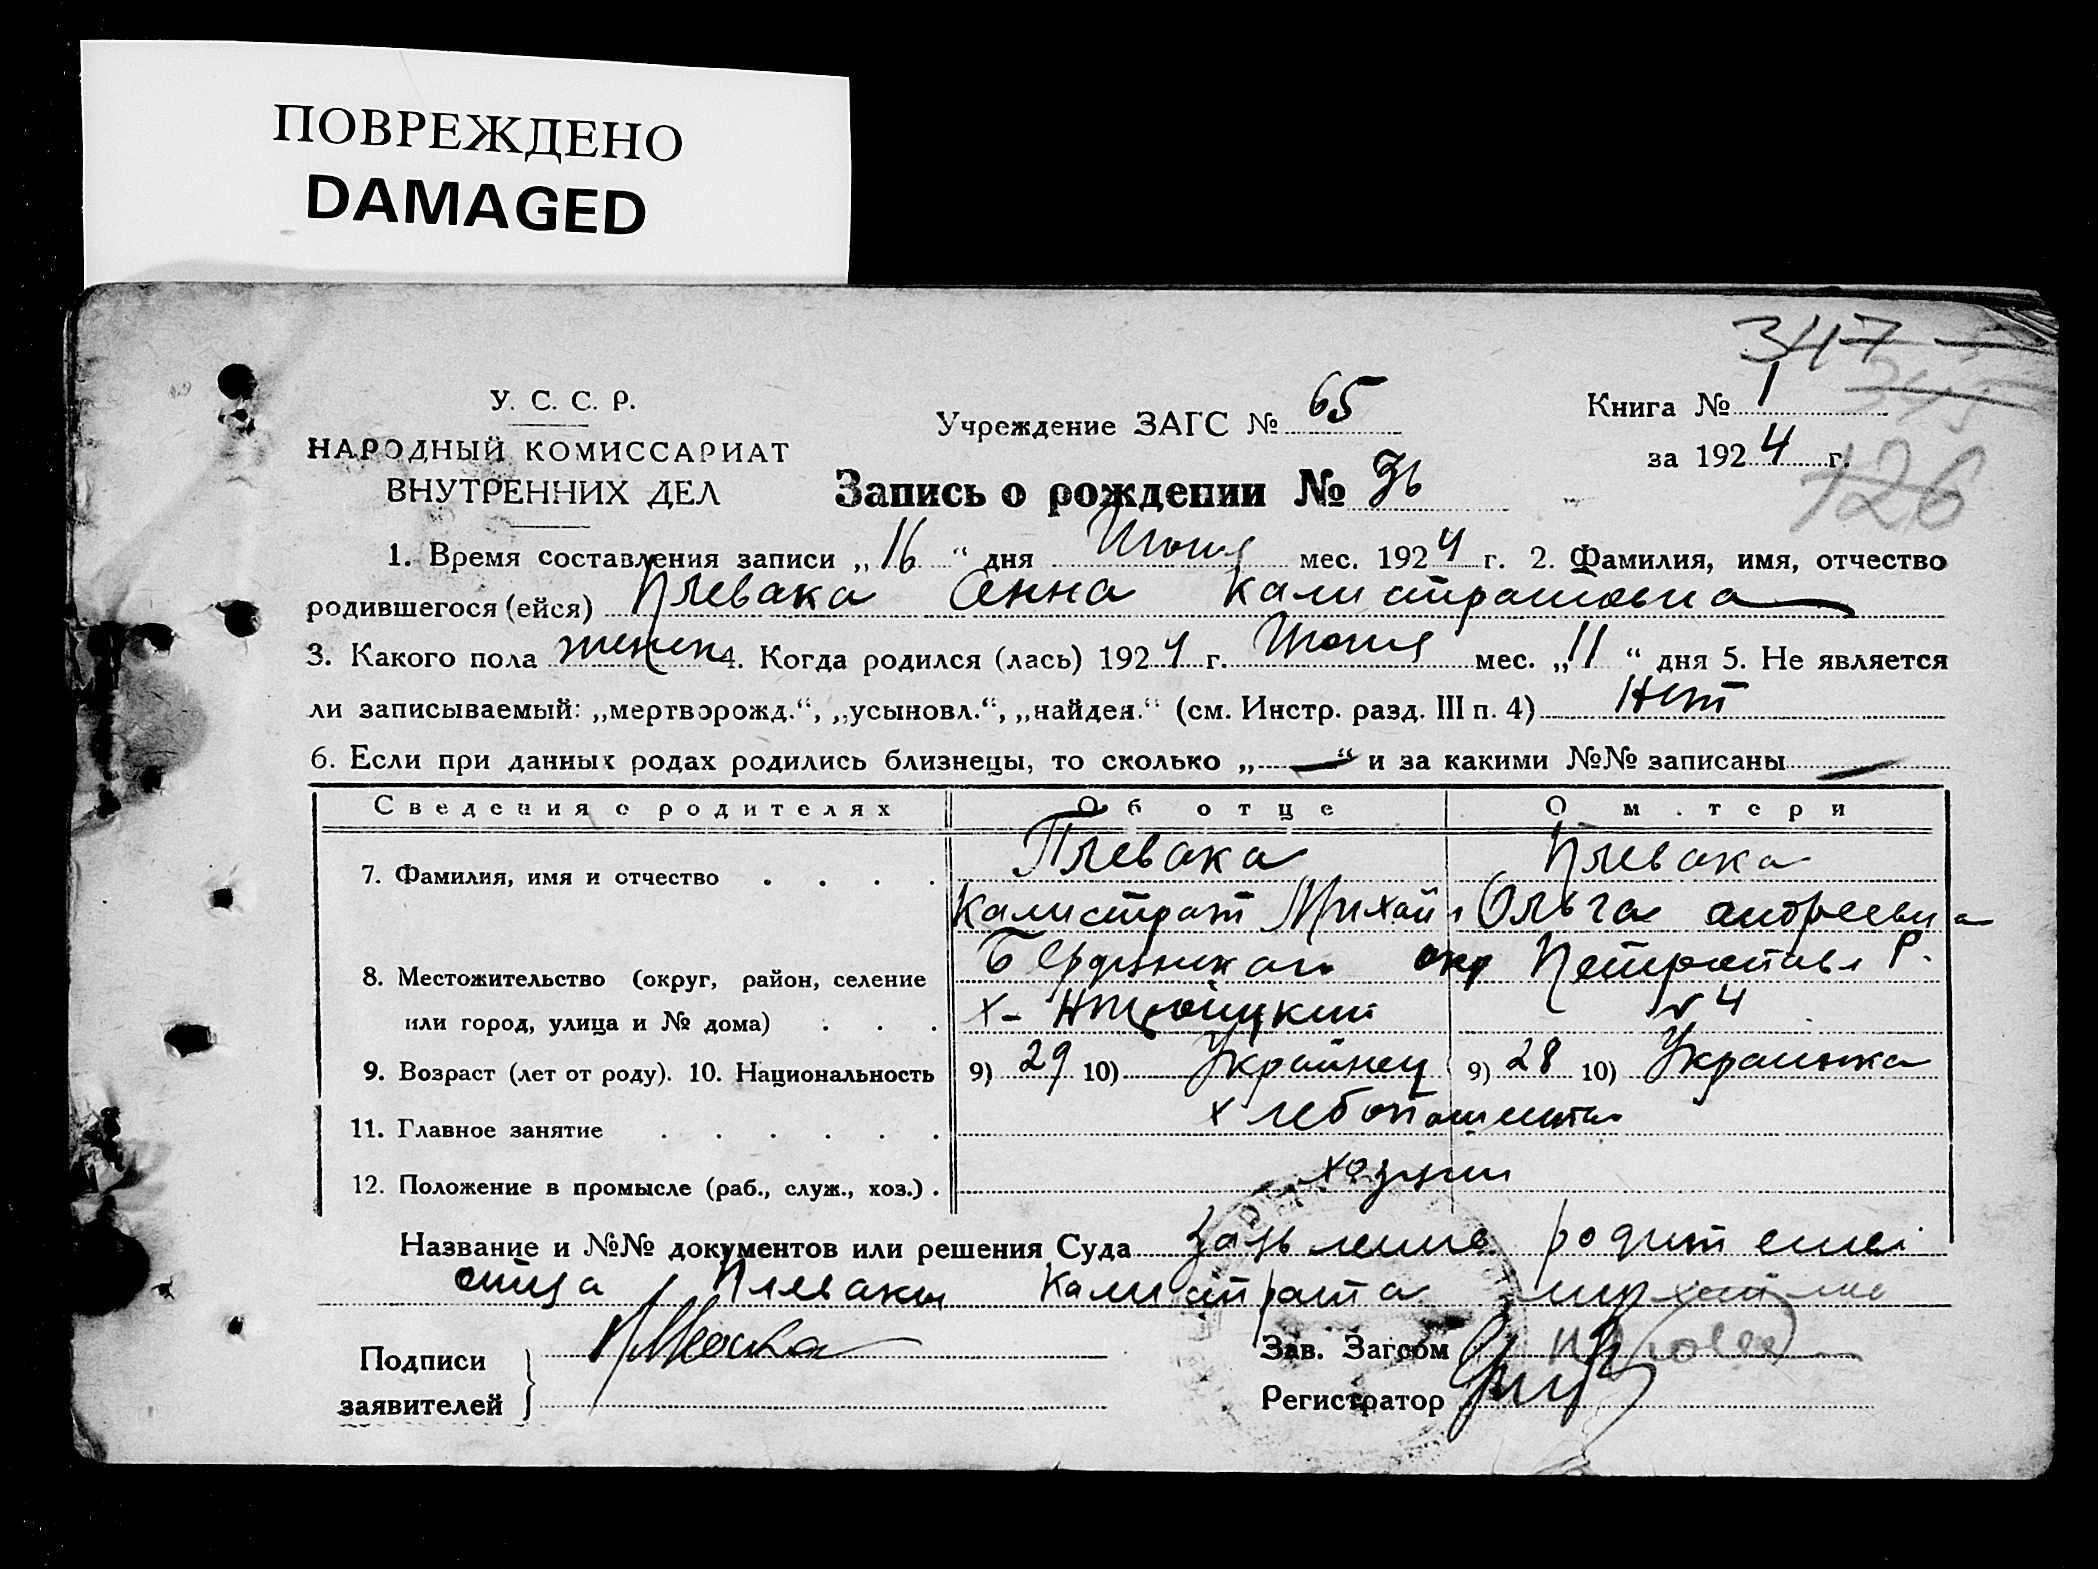 ПОВРЕЖДЕНО
DAMAGED
347
315
126
У. С. С. Р.
НАРОДНЫЙ КОМИССАРИАТ
ВНУТРЕННИХ ДЕЛ
Учреждение ЗАГС № 65
Книга № 1
за 1924 г.
Запись о рождении № 36
1. Время составления записи „16“ дня Июня мес. 1924 г. 2. Фамилия, имя, отчество
родившегося (ейся) Плевака Анна Калистратовна
3. Какого пола женск 4. Когда родился (лась) 1924 г. Июня мес. „11“ дня 5. Не является
ли записываемый: „мертворожд.“, „усыновл.“, „найден.“ (см. Инстр. разд. III п. 4) нет
6. Если при данных родах родились близнецы, то сколько „—“ и за какими №№ записаны —
Сведения о родителях Об отце О м.тери
7. Фамилия, имя и отчество . . . . Плевака Плевака
Калистрат Михайл Ольга андреевна
8. Местожительство (округ, район, селение Бердянского окр Петропавл Р.
или город, улица и № дома) . . . х- №4
9. Возраст (лет от роду). 10. Национальность 9) 29 10) Украинец 9) 28 10) Украинка
11. Главное занятие . . . . . . хлебопашество
12. Положение в промысле (раб., служ., хоз.) . хозяин
Название и №№ документов или решения Суда Заявление родителей
отца Плеваки Калистрата
Подписи
заявителей
Зав. Загсом
Регистратор